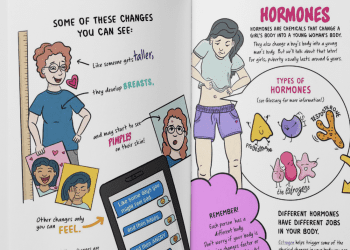 SOME OF THESE CHANGES
YOU CAN SEE:
Like someone gets taller,
they develop BREASTS,
and may start to see
PIMPLES
on their skin!
Other changes only
you can
FEEL.
Like some days you
might feel sad,
and then happy,
and then ANGRY
HORMONES
HORMONES ARE CHEMICALS THAT CHANGE A
GIRL'S BODY INTO A YOUNG WOMAN'S BODY.
They also change a boy's body into a young
man's body. But we'll talk about that later!
For girls, puberty usually lasts around 6 years.
TYPES OF
HORMONES
(see Glossary for more information!)
PROGESTERONE
Estrogens
REMEMBER!
Each person has a
different body.
Don't worry if your body is
changing faster or
DIFFERENT HORMONES
HAVE DIFFERENT JOBS
IN YOUR BODY.